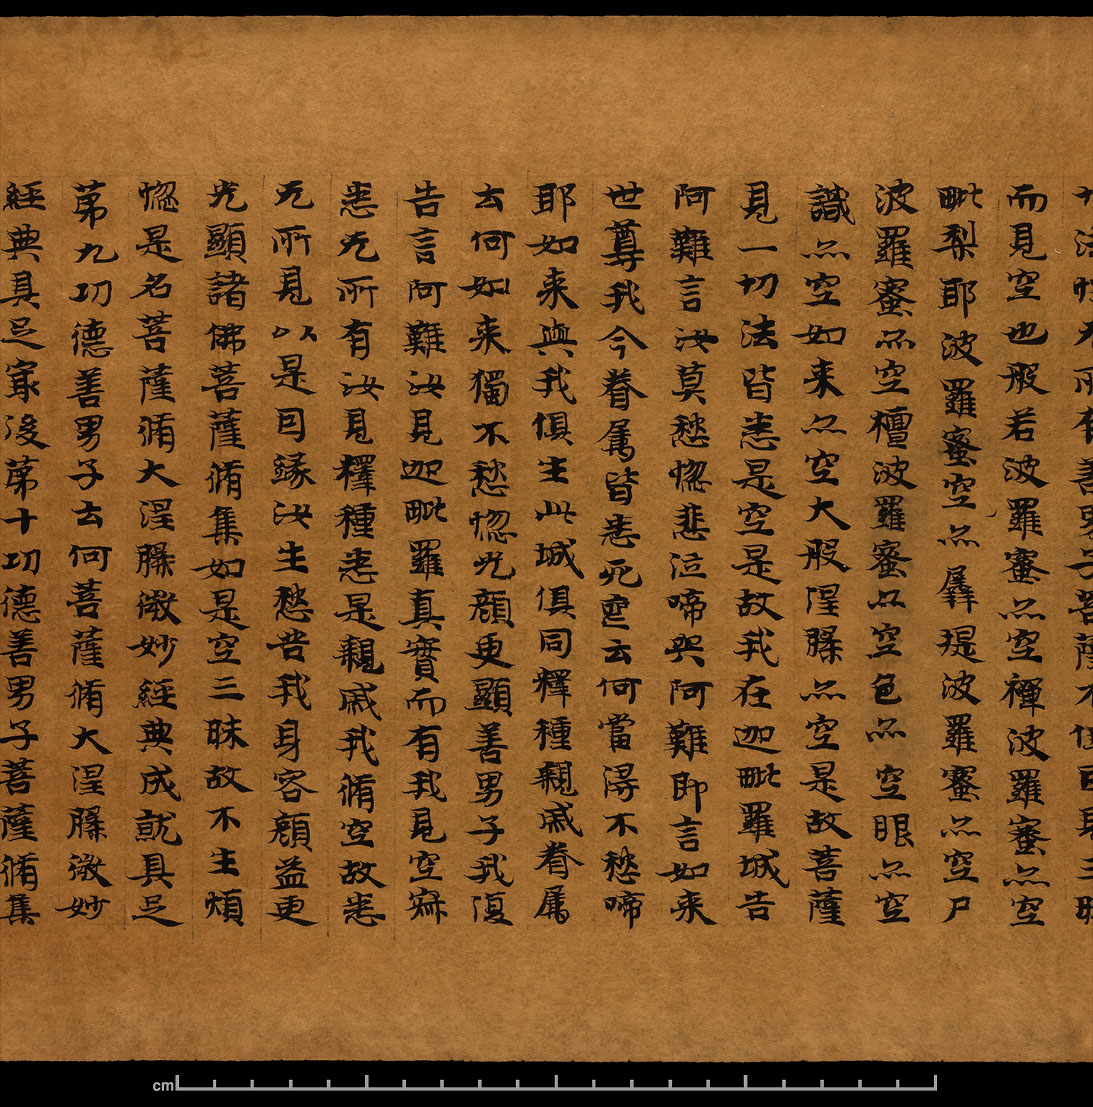 法性无所有善男子菩薩不但因見三昧
而見空也般若波羅蜜亦空禪波羅蜜亦空
毗梨耶波羅蜜空亦羼提波羅蜜亦空尸
波羅蜜亦空檀波羅蜜亦空色亦空眼亦空
識亦空如来亦空大般涅槃亦空是故菩薩
見一切法皆悉是空是故我在迦毗羅城告
阿難言汝莫愁惱悲泣啼哭阿難即言如来
世尊我今眷属皆悉死喪云何當得不愁啼
耶如来與我俱生此城俱同釋種親戚眷属
云何如来獨不愁惱光顔更顯善男子我復
告言阿難汝見迦毗羅真實而有我見空寂
悉无所有汝見釋種悉是親戚我脩空故悉
无所見以是因縁汝生愁苦我身容顔益更
光顯諸佛菩薩脩集如是空三昧故不生煩
惱是名菩薩脩大涅槃微妙經典成就具足
第九功德善男子云何菩薩脩大涅槃微妙
經典具足冣後第十功德善男子菩薩脩集
cm